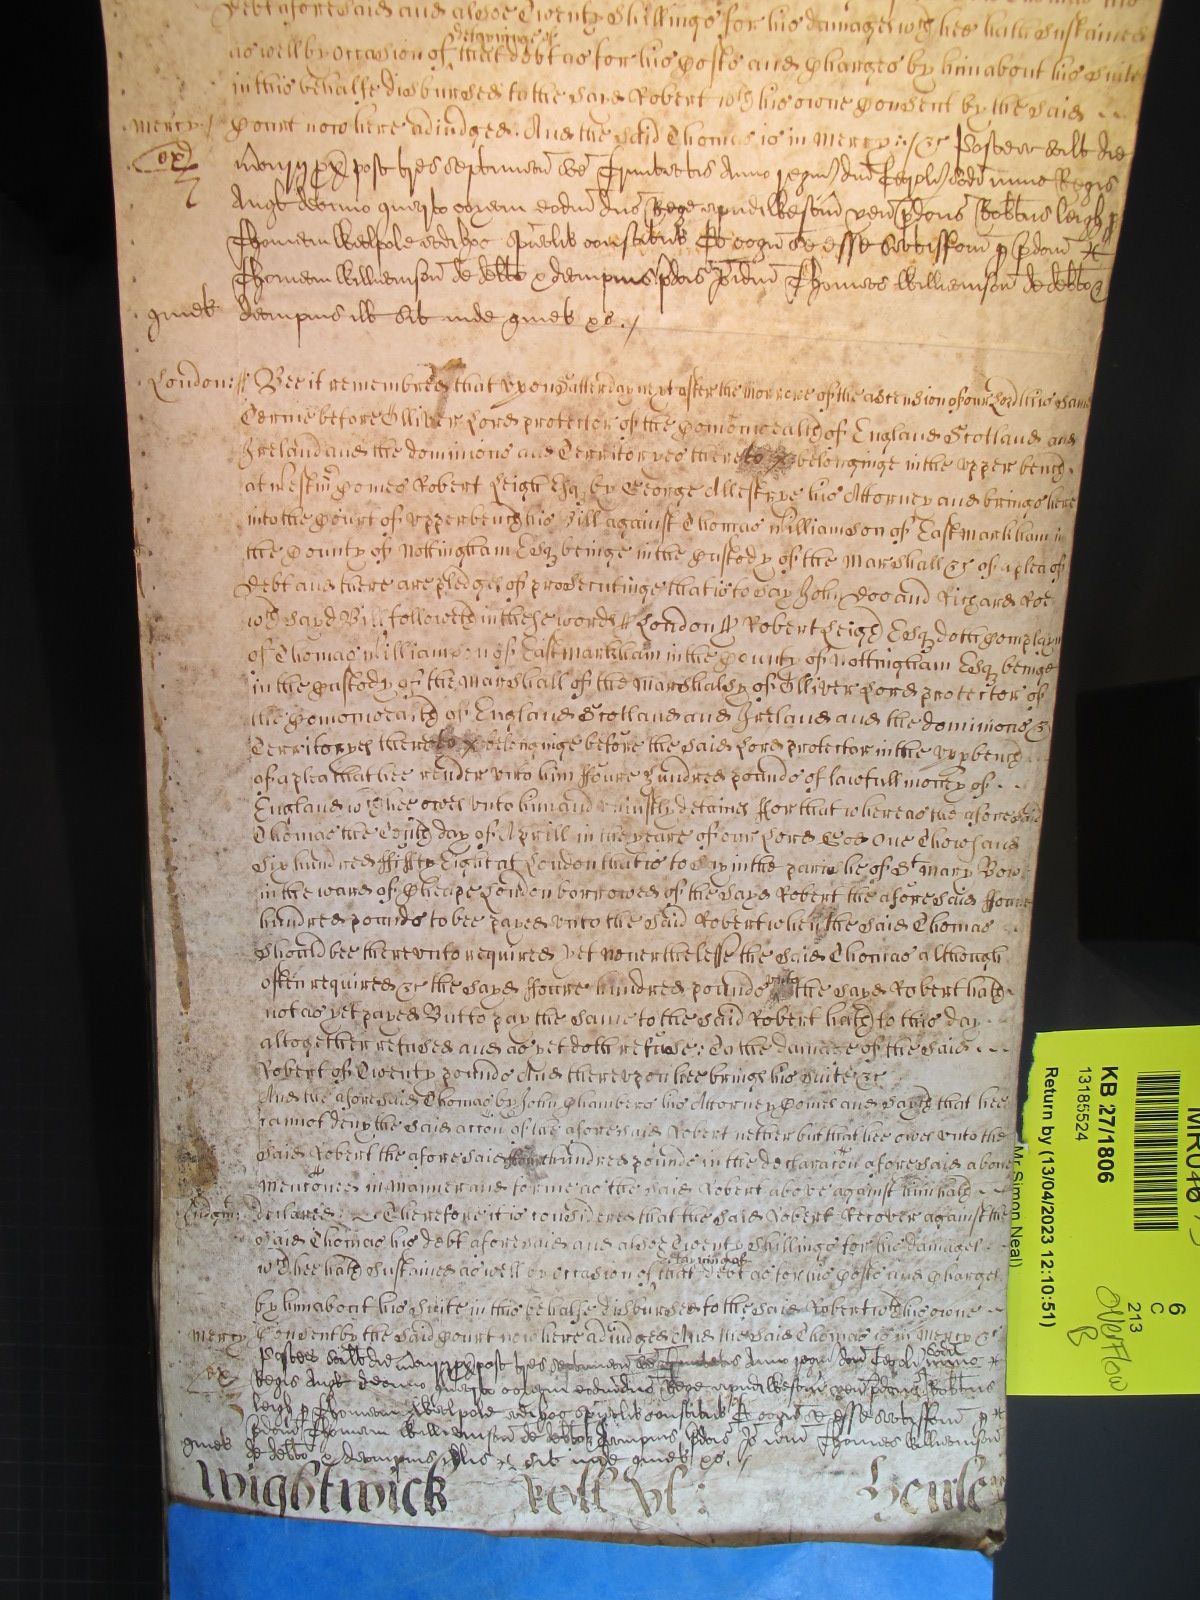 debt aforesaid and alsoe Twenty Shillings for his damages wch hee hath sustained
as well by occasion of detayninge of that debt as for his Costs and Charges by him about his Suite
in this behalfe disbursed to the sayd Robert wth his owne Consent by the said
Mercy / Court now here adiudged. And the said Thomas is in Mercy: / &c Postea scilt die
post tres septimanas Trinitatis Anno regni Dni Caroli nunc Regis
Angl decimo quarto coram eodem Dno Rege apud Westm ven pdcus Robtus Leigh p
Thomam Walpole
Thomam Williamson de debto & dampnis pdcis Thomas Williamson de debto &
dampnis ill sit inde quiet &c. /
London: // Bee it remembred that upon Satterday next after the morrow of the Ascension of our Lord this same
Terme before Olliver Lord protector of the Comonwealth of England Scotland and
Ireland and the dominions and Territoryes thereto belonginge in the upper bench
at Westmr Comes Robert Leigh Esq by George Allestrye his Attorney and brings here
into the Court of upper bench his Bill against Thomas Williamson of East Markham in
the County of Nottingham Esq beinge in the Custody of the Marshall &c of a plea of
debt and there are pledges of prosecutinge that is to say John Doo and Richard Roe
wch sayd Bill followeth in these words // London // Robert Leigh Esq doth Complayn
of Thomas Williamson of East Markham in the County of Nottingham Esq beinge
in the Custody of the Marshall of the Marshalsy of Olliver Lord protector of
the Comonwealth of England Scotland and Ireland and the dominions &
Territoryes thereto belonginge before the said Lord protector in the upp bench
of a plea that hee render unto him ffoure hundred pounds of lawfull money of
England wch hee owes unto him and uniustly detaines ffor that whereas the aforesaid
Thomas the Tenth day of Aprill in the yeare of our Lord God One Thowsand
Six hundred ffifty Eight at London that is to say in the parishe of St Mary Bow
in the ward of Cheape London borrowed of the sayd Robert the aforesaid ffoure
hundred pounds to bee payed unto the said Robert when the said Thomas
should bee thereunto required yet neverthelesse the said Thomas although
often required &c the sayd ffoure hundred pounds unto the sayd Robert hath
not as yet payed But to pay the same to the said Robert hath to this day
altogether refused and as yet doth refuse: To the damage of the said
Robert of Twenty pounds And thereupon hee brings his suite &c
And the aforesaid Thomas by John Chambers his Attorney Comes and sayth that hee
cannot deny the said accon of the aforesaid Robert neither but that hee owes unto the
said Robert the aforesaid ffoure hundred pounds in the declaracon aforesaid above
Mentioned in Manner and forme as the said Robert above against him hath
declared: Therefore it is considered that the said Robert Recover against the
said Thomas his debt aforesaid and alsoe Twenty Shillings for his damages
wch hee hath sustained as well by occasion of detayning of that debt as for his Costs and Charges
by him about his Suite in this behalfe disbursed to the said Robert wth his owne
Mercy Consent by the said Court now here adiudged And the said Thomas is in Mercy &c
Postea scilt die post tres septimanas Trinitatis Anno regni Dni Caroli nunc
Regis Angl decimo quarto coram eodem Dno Rege apud Westm ven pdcus Robtus
Leigh p Thomam Walpole
pdcum Thomam Williamson de debto & dampnis pdcis Thomas Williamson
de debto & dampnis illis &c sit inde quiet &c. /
Wightwick Roll
KB 27/1806
13185524
Return by (13/04/2023 12:10:51)
Mr Simon Neal)
6
C
213
Overflow
B